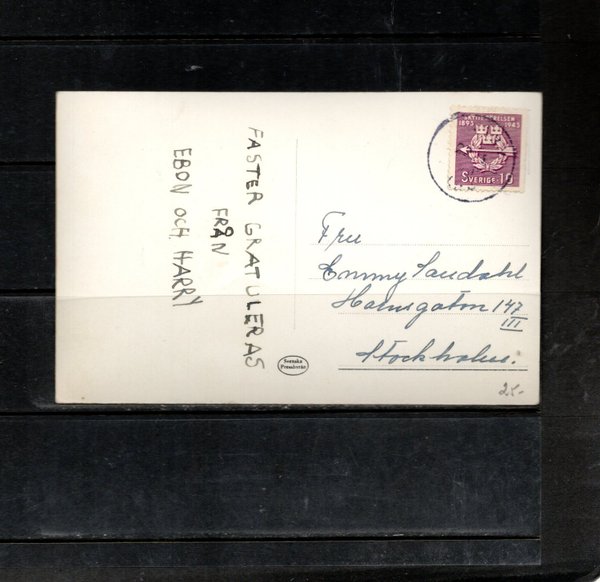 FASTER GRATULERAS
FRÅN
EBON OCH HARRY
SKYTTERÖRELSEN
1893 1943
SVERIGE 10
Fru
Emmy Sandahl
Holmsgatan 147
III
Stockholm.
Svenska
Pressbyrån
25-